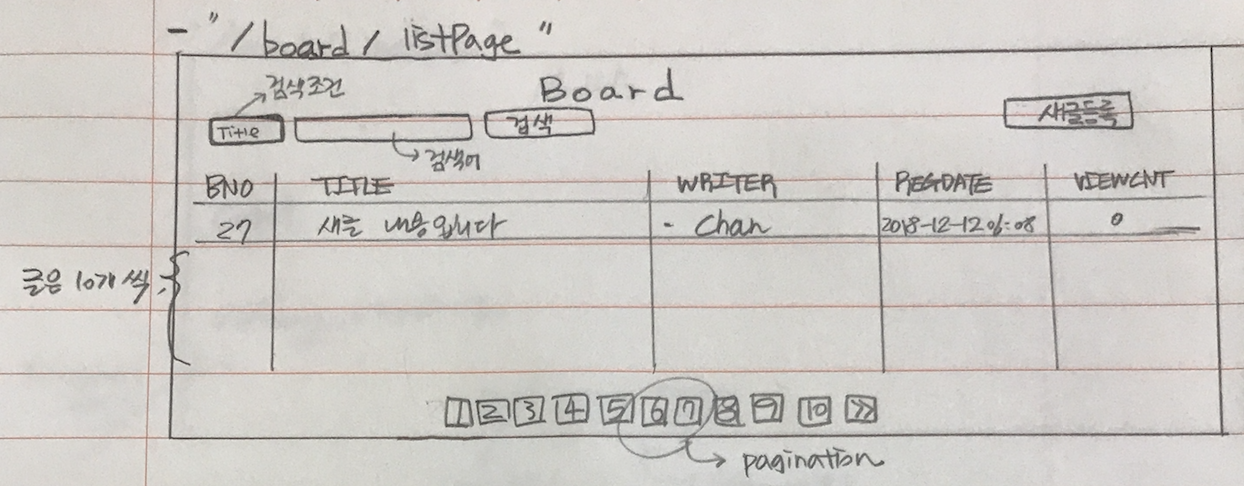 - "/board/listPage"
검색조건
Board
Title 검색 새글등록
검색어
BNO TITLE WRITER REGDATE VIEWCNT
27 새글 내용입니다 - Chan 2018-12-12 06:08 0
글은 10개 씩
1 2 3 4 5 6 7 8 9 10 >>
pagination